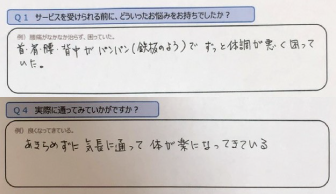 Q1 サービスを受けられる前に、どういったお悩みをお持ちでしたか？
例）腰痛がなかなか治らず、困っていた。
首・肩・腰・背中がパンパン(鉄板のよう)で ずっと体調が悪く困って
いた。
Q4 実際に通ってみていかがですか？
例）良くなってきている。
あきらめずに 気長に通って 体が楽になってきている